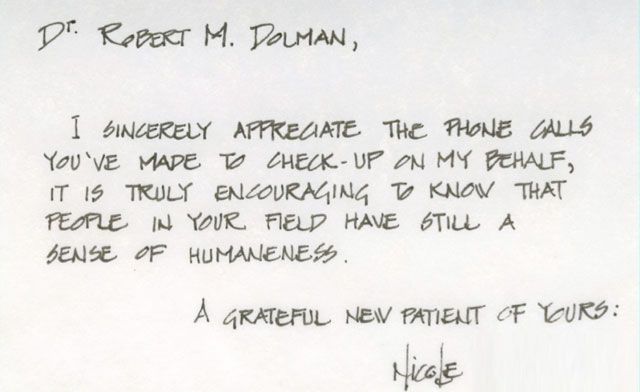 Dr. ROBERT M. DOLMAN,
I SINCERELY APPRECIATE THE PHONE CALLS
YOU'VE MADE TO CHECK-UP ON MY BEHALF,
IT IS TRULY ENCOURAGING TO KNOW THAT
PEOPLE IN YOUR FIELD HAVE STILL A
SENSE OF HUMANENESS.
A GRATEFUL NEW PATIENT OF YOURS:
NICOLE